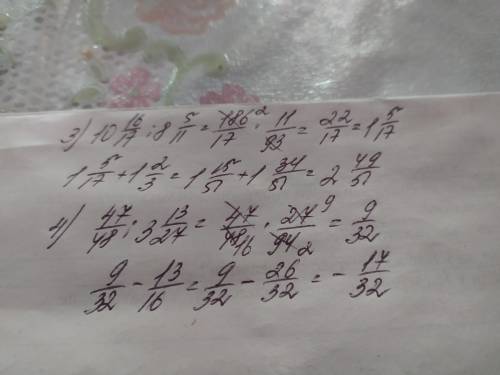 3) 10 16/17 : 8 5/11 = 186/17 · 11/93 = 22/17 = 1 5/17
1 5/17 + 1 2/3 = 1 15/51 + 1 34/51 = 2 49/51
4) 47/48 : 3 13/27 = 47/48 · 27/94 = 9/32
9/32 - 13/16 = 9/32 - 26/32 = - 17/32